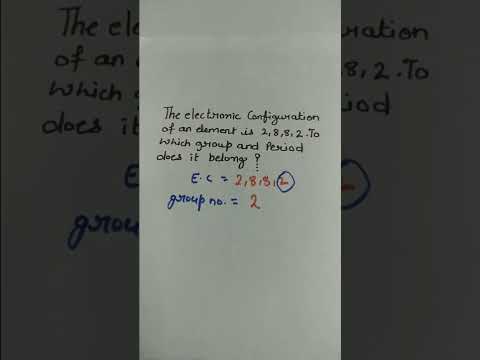 The electronic Configuration
of an element is 2,8,8,2. To
which group and Period
does it belong ?
E.C = 2,8,8,2
group no. = 2